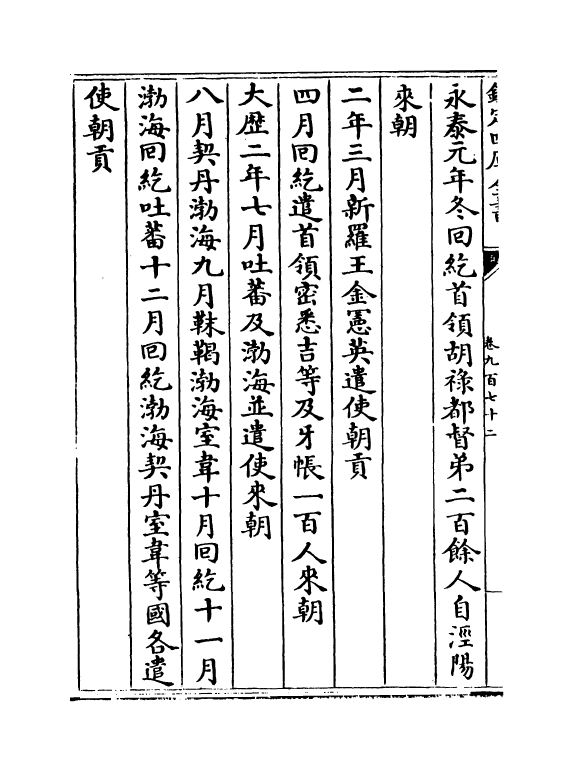 永泰元年冬回紇首領胡祿都督弟二百餘人自涇陽
來朝
二年三月新羅王金憲英遣使朝貢
四月回紇遣首領密悉吉等及牙帳一百人來朝
大歷二年七月吐蕃及渤海並遣使來朝
八月契丹渤海九月靺鞨渤海室韋十月回紇十一月
渤海回紇吐蕃十二月回紇渤海契丹室韋等國各遣
使朝貢
卷九百七十二